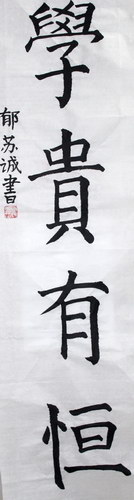 學貴有恒
郁苏诚書